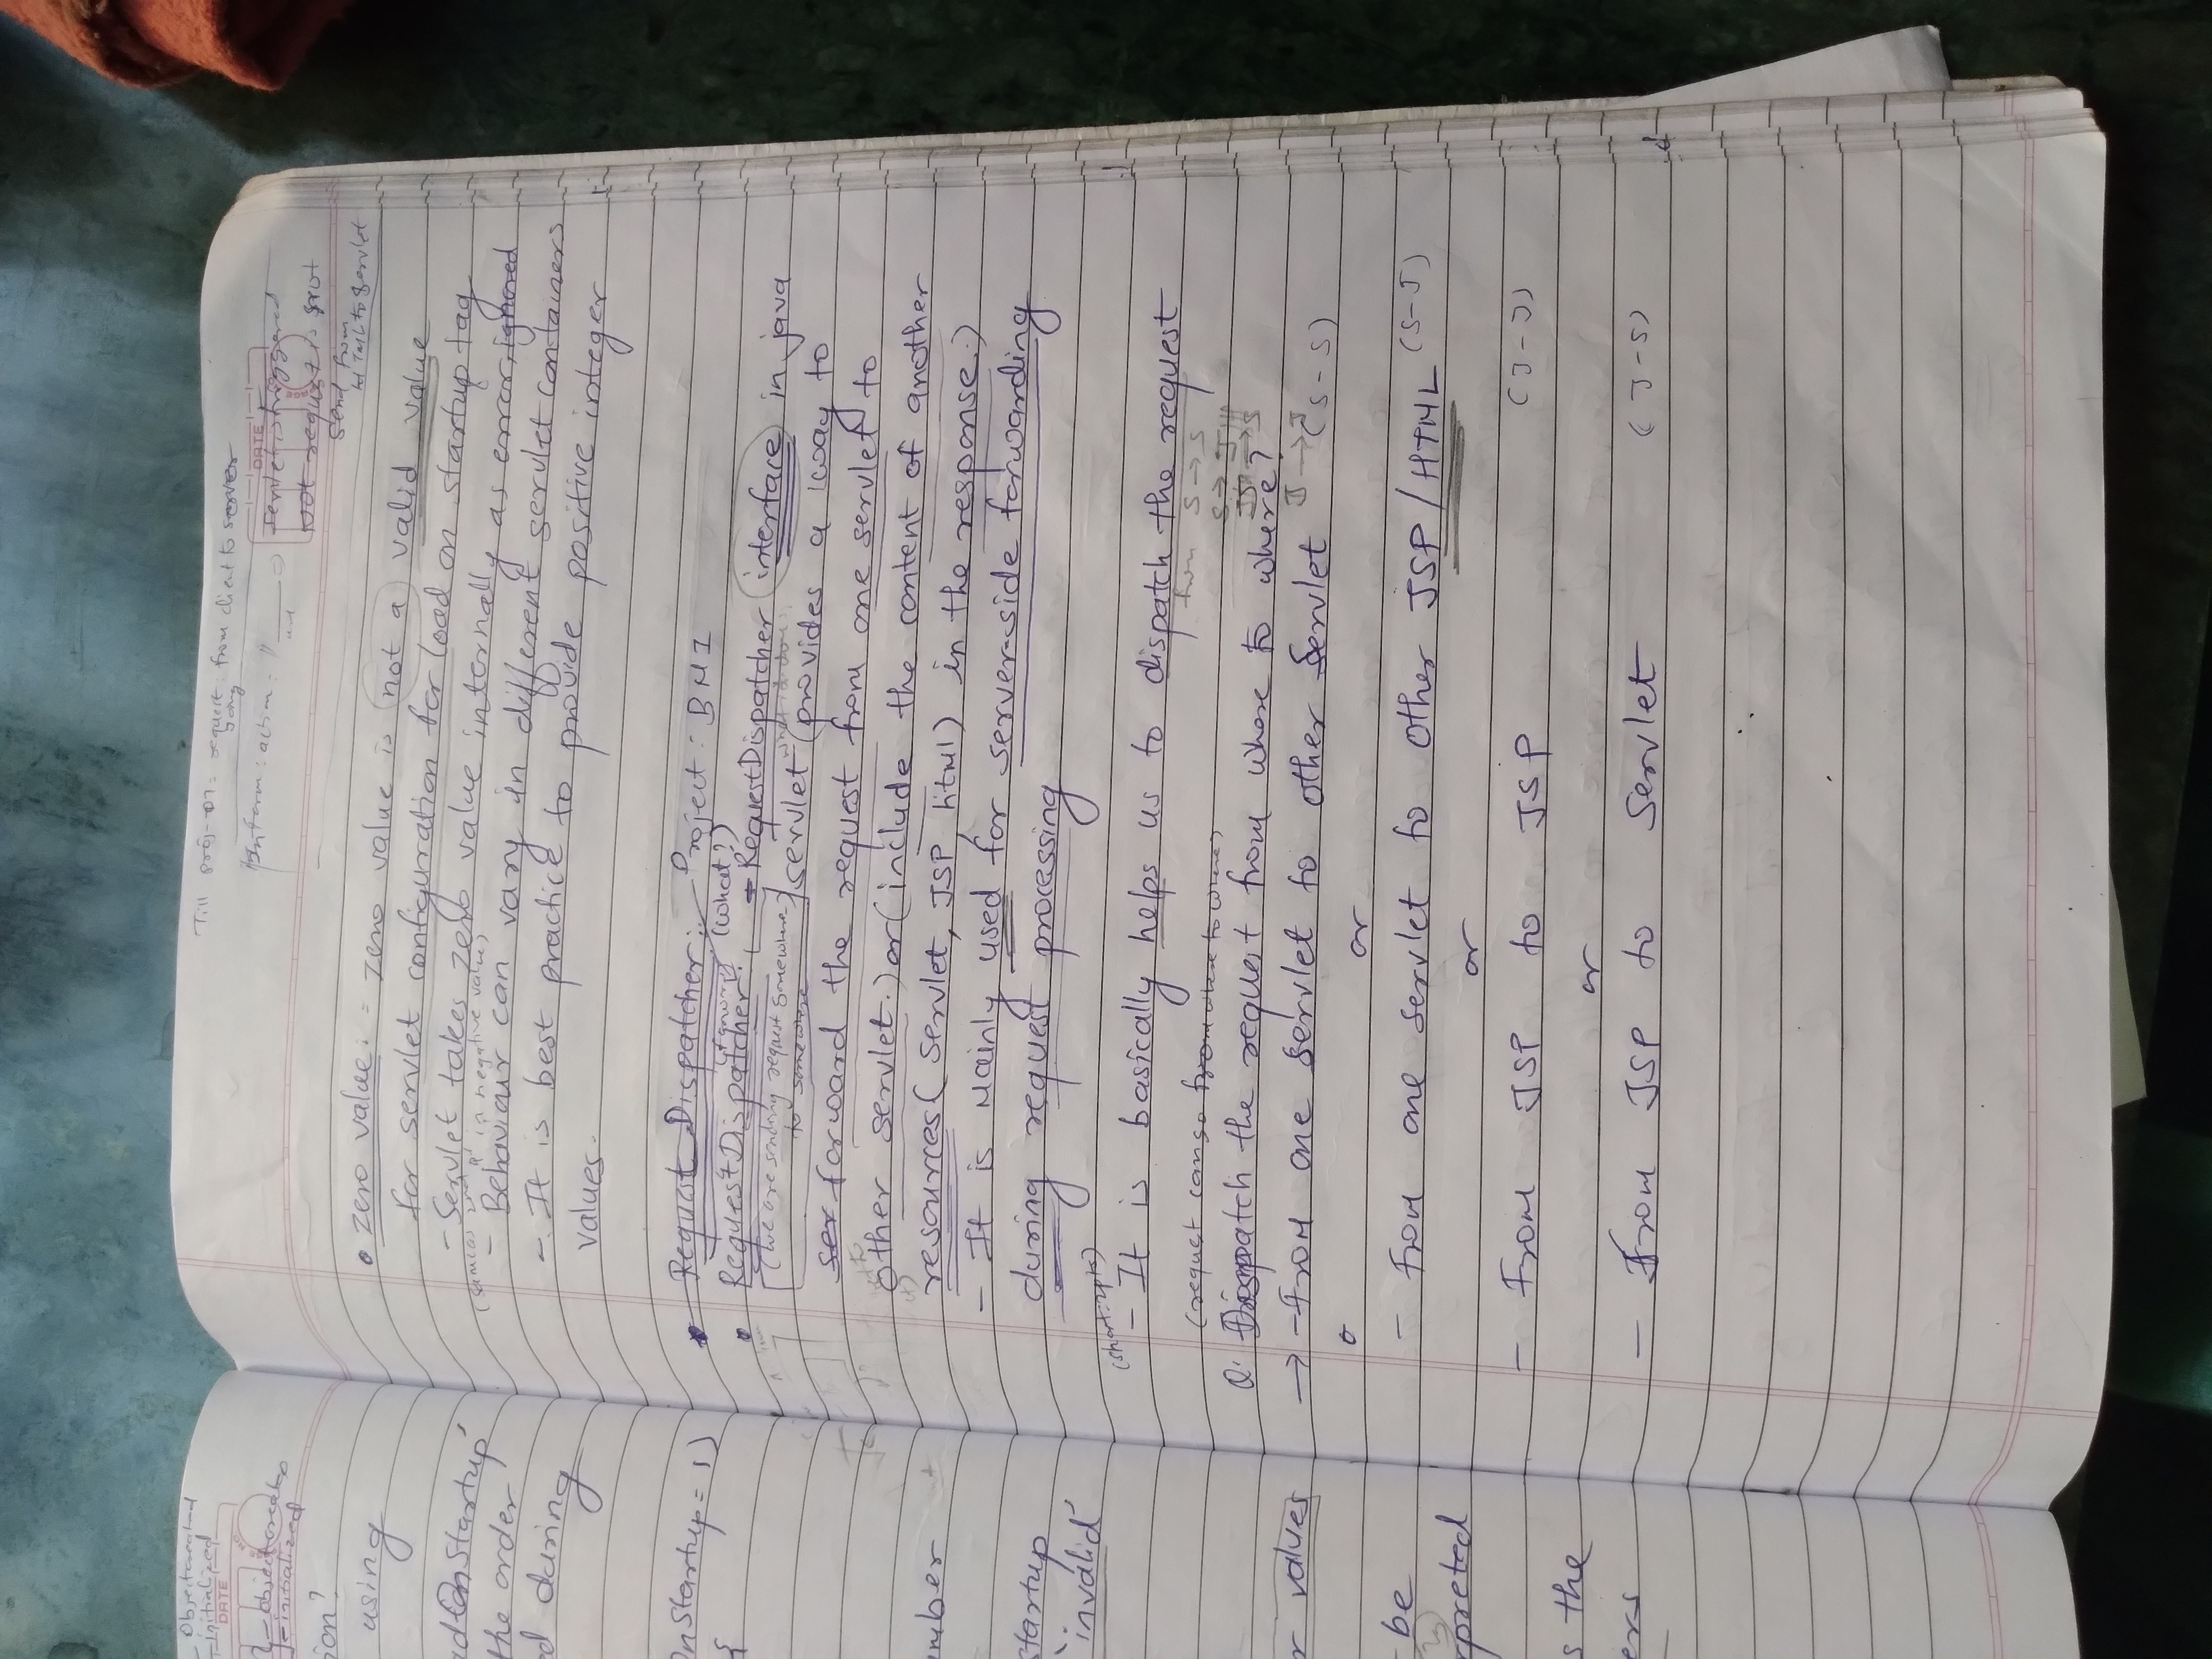 Objectcreated
-initialized
DATE
objectcreated
initialized
ion?
using
adOnStartup'
the order
ed during
OnStartup = 1)
{
mber
startup
'invalid'
r values
be
rpreted
s the
ers
Till proj-07: request from client to server
going
form: action:
DATE
servlet is triggered
Not request is
send from
HTML to Servlet
• zero value: = zero value is not a valid value
for servlet configuration for load on startup tag
- Servlet takes zero value internally as error, ignored
(same as 2nd pt in negative value)
- Behaviour can vary in different servlet containers
- It is best practice to provide positive integer
values.
Request Dispatcher:- Project: BMI
• RequestDispatcher: (what?) - RequestDispatcher interface in java
(we are sending request somewhere
to somewere
servlet (provides a way to
ser forward the request from one servlet to
other servlet.) or (include the content of another
resources (servlet, JSP, html) in the response.)
- It is mainly used for server-side forwarding
during request processing
(short: 2pts)
- It is basically helps us to dispatch the request
from S → S
(request can go from where to where)
S → J
Q. Dispatch the request from where to where?
J → J
→ - From one servlet to other Servlet (S-S)
or
- From one servlet to other JSP / HTML (S-J)
or
- From JSP to JSP (J-J)
or
- From JSP to Servlet (J-S)